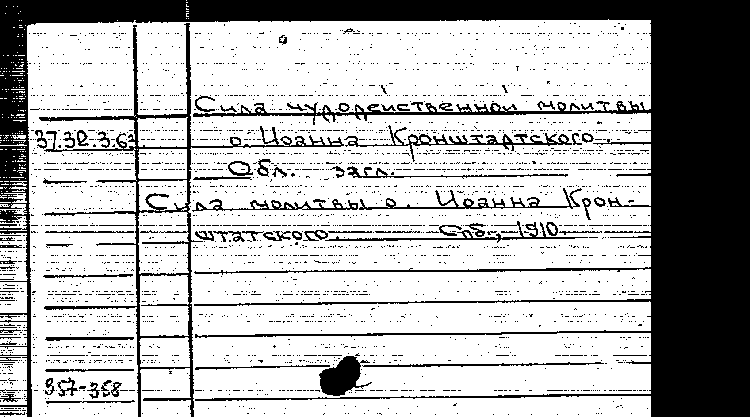 Сила чудодейственной молитвы
37.32.3.63. о. Иоанна Кронштадтского.
Обл. загл.
Сила молитвы о. Иоанна Крон-
штатского. Спб., 1910.
357-358